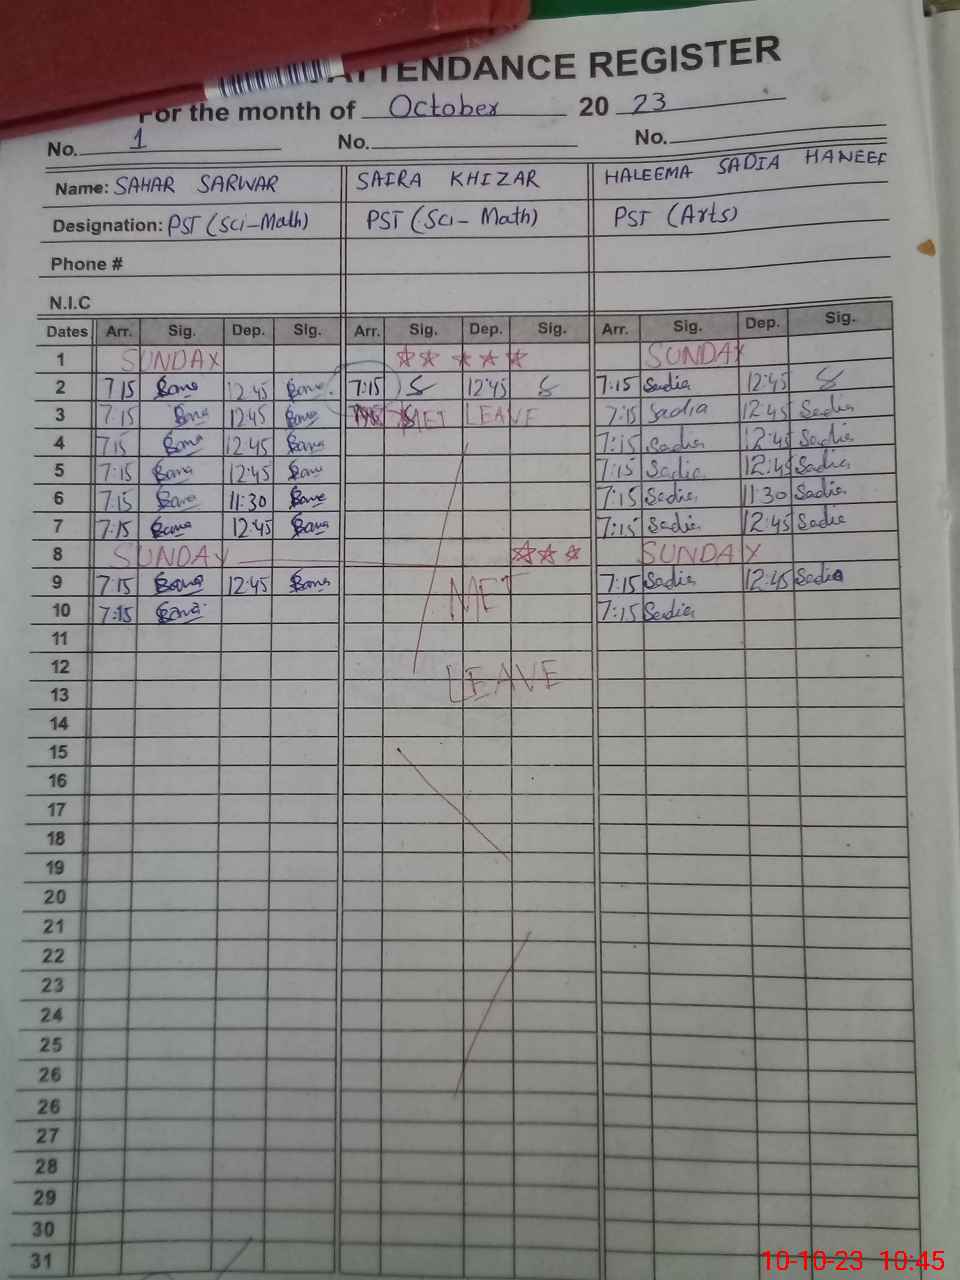 ATTENDANCE REGISTER
For the month of October 20 23
No. 1 No. No.
Name: SAHAR SARWAR SAIRA KHIZAR HALEEMA SADIA HANEEF
Designation: PST (Sci-Math) PST (Sci-Math) PST (Arts)
Phone #
N.I.C
Dates Arr. Sig. Dep. Sig. Arr. Sig. Dep. Sig. Arr. Sig. Dep. Sig.
1 SUNDAY SUNDAY
2 7:15 12:45 7:15 12:45 7:15 Sadia 12:45
3 7:15 12:45 MET LEAVE 7:15 Sadia 12:45 Sadia
4 7:15 12:45 7:15 Sadia 12:45 Sadia
5 7:15 12:45 7:15 Sadia 12:45 Sadia
6 7:15 11:30 7:15 Sadia 11:30 Sadia
7 7:15 12:45 7:15 Sadia 12:45 Sadia
8 SUNDAY SUNDAY
9 7:15 12:45 MET 7:15 Sadia 12:45 Sadia
10 7:15 7:15 Sadia
11
12 LEAVE
13
14
15
16
17
18
19
20
21
22
23
24
25
26
26
27
28
29
30
31
10-10-23 10:45